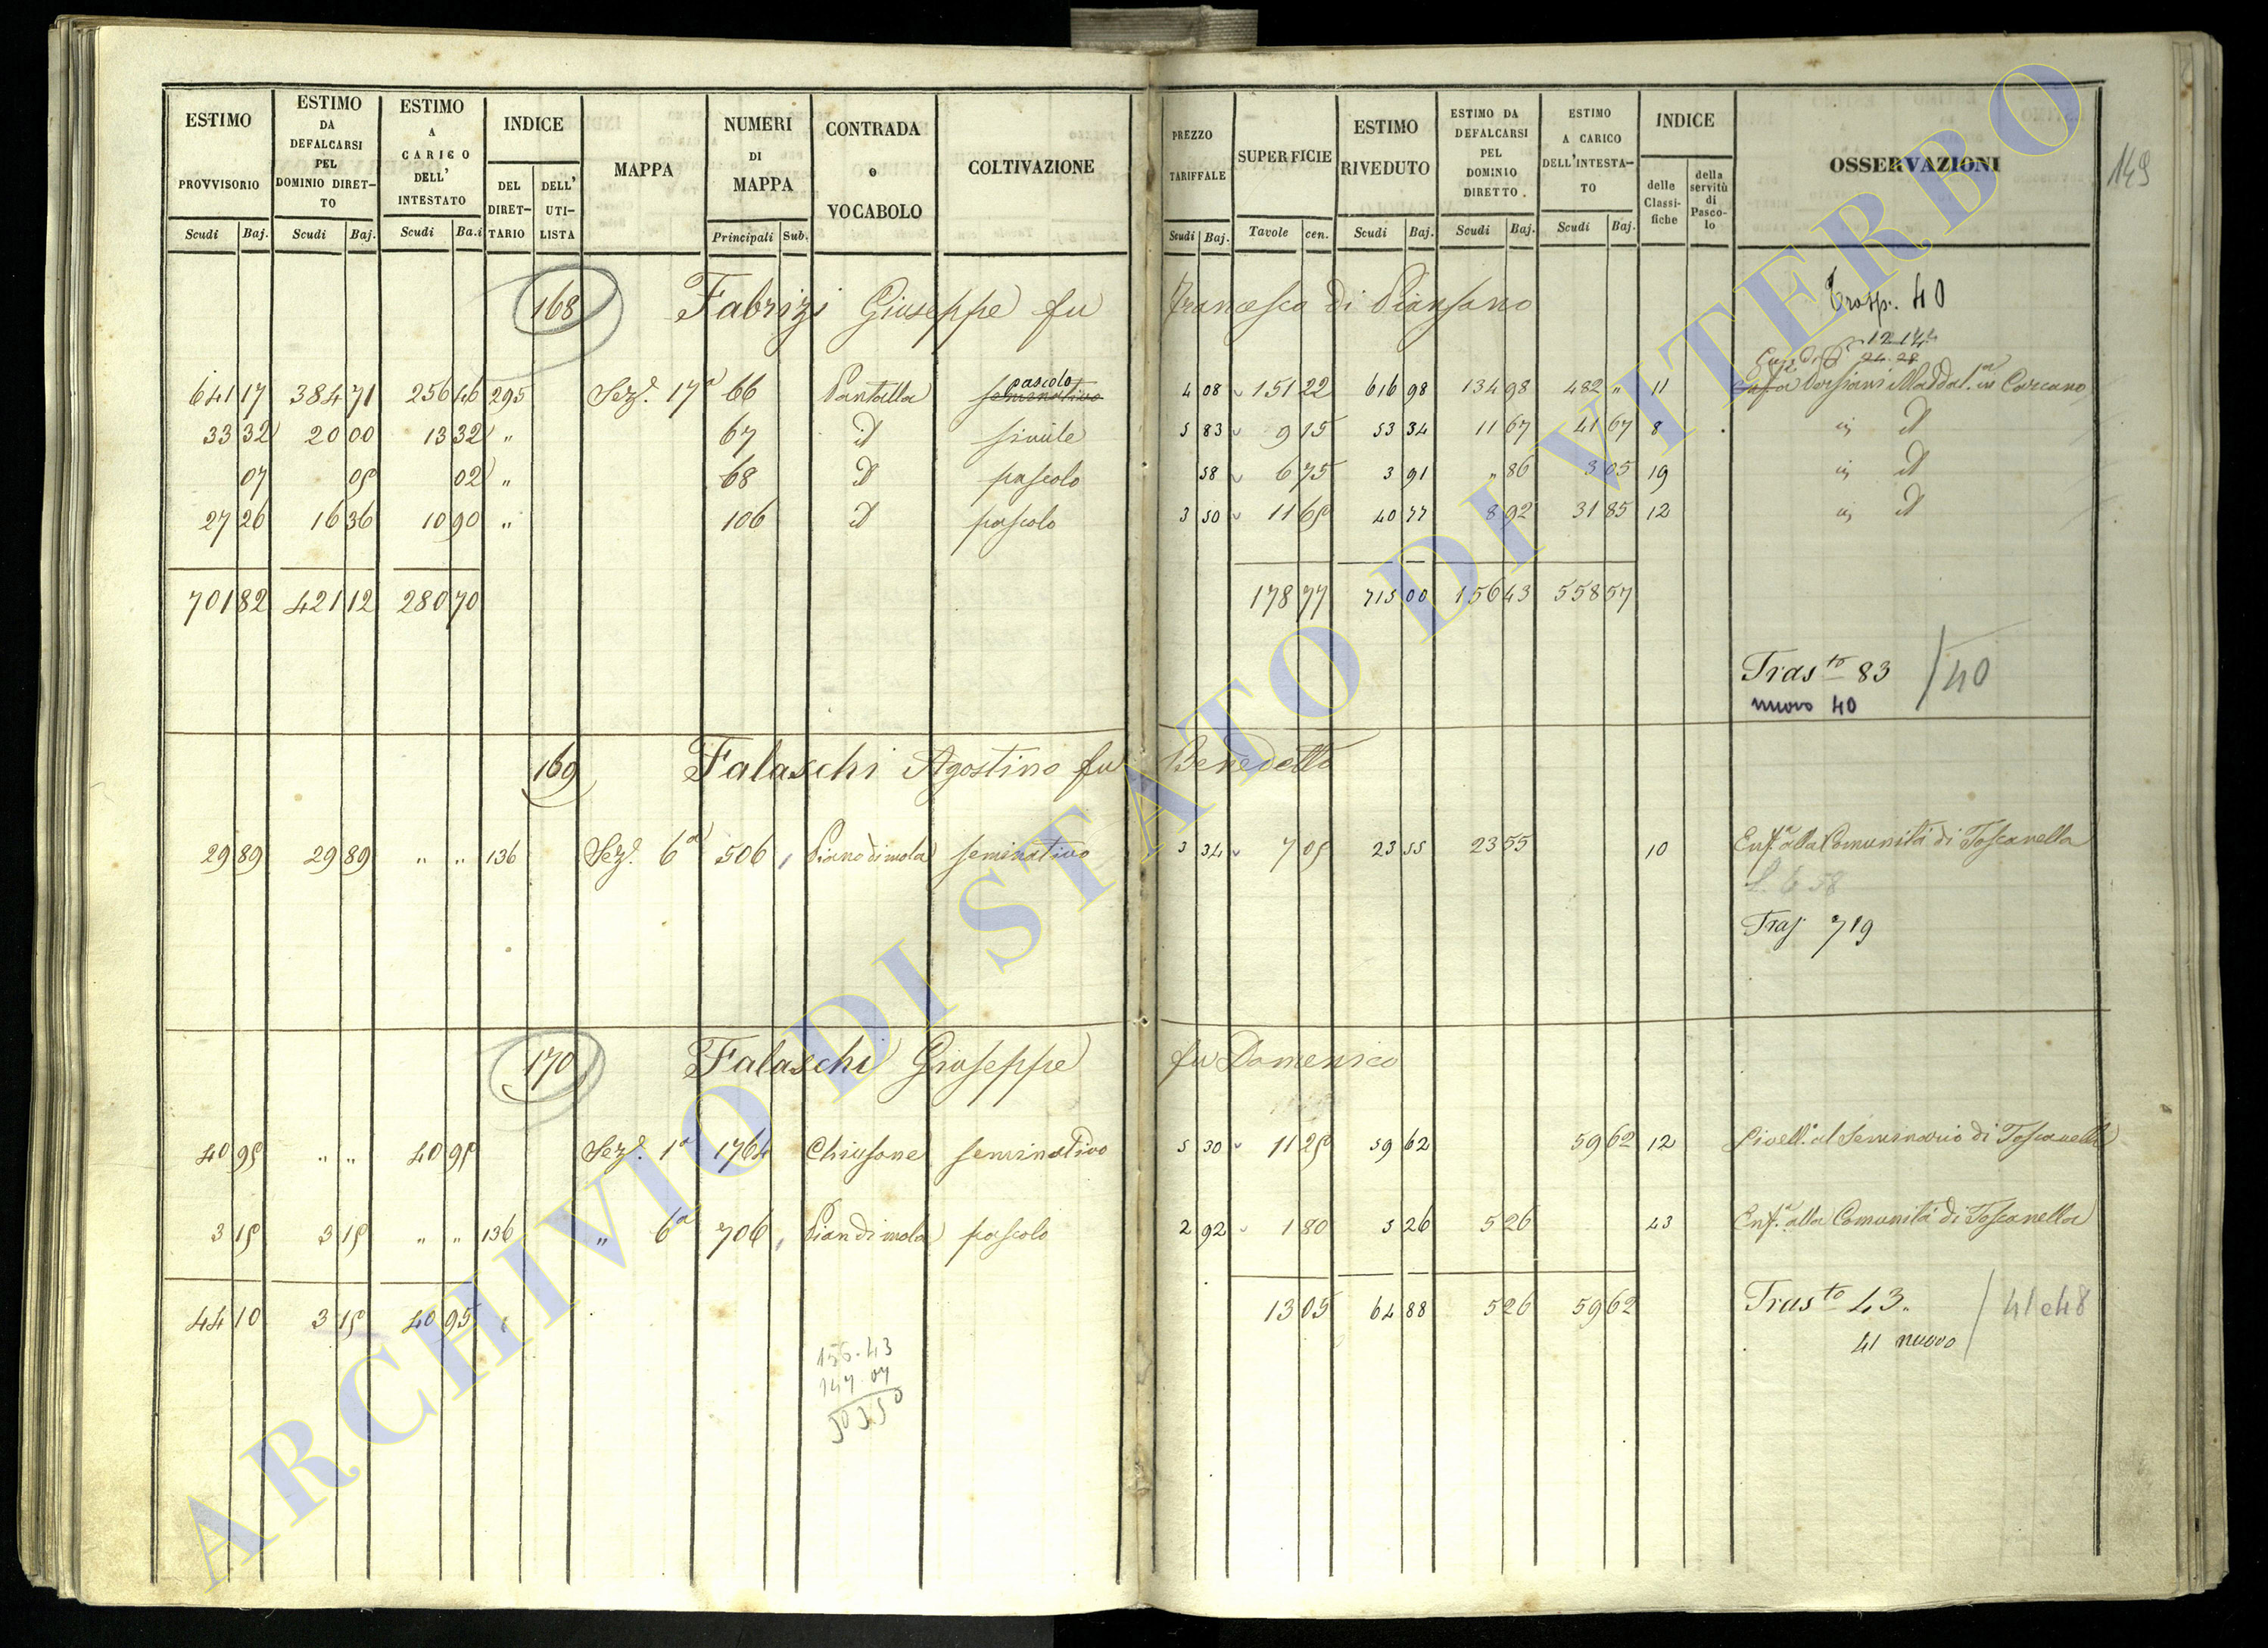 149
ESTIMO PROVVISORIO | ESTIMO DA DEFALCARSI PEL DOMINIO DIRET-TO | ESTIMO A CARICO DELL' INTESTATO | INDICE | MAPPA | NUMERI DI MAPPA | CONTRADA o VOCABOLO | COLTIVAZIONE | PREZZO TARIFFALE | SUPERFICIE | ESTIMO RIVEDUTO | ESTIMO DA DEFALCARSI PEL DOMINIO DIRETTO. | ESTIMO A CARICO DELL'INTESTA-TO | INDICE | OSSERVAZIONI
DEL DIRET-TARIO | DELL' UTI-LISTA | delle Classi-fiche | della servitù di Pasco-lo
Scudi Baj. | Scudi Baj. | Scudi Ba.i | Principali Sub. | Scudi Baj. | Tavole cen. | Scudi Baj. | Scudi Baj. | Scudi Baj.
168 Fabrizi Giuseppe fu Francesco di Piansano Trasp. 40
12 144
24. 28
641 17 | 384 71 | 256 46 | 295 | Sez.e 17a | 66 | Pantalla | pascolo seminativo | 4 08 | 151 22 | 616 98 | 134 98 | 482 „ | 11 | Maddal.a in Carcano
33 32 | 20 00 | 13 32 | „ | 67 | d | simile | 5 83 | 9 15 | 53 34 | 11 67 | 41 67 | 8 | d
07 | 05 | 02 | „ | 68 | d | pascolo | 58 | 6 75 | 3 91 | „ 86 | 3 05 | 19 | d
27 26 | 16 36 | 10 90 | „ | 106 | d | pascolo | 3 50 | 11 65 | 40 77 | 8 92 | 31 85 | 12 | d
701 82 | 421 12 | 280 70 | 178 77 | 715 00 | 156 43 | 558 57
Trasto 83 / 40
nuovo 40
169 Falaschi Agostino fu Benedetto
29 89 | 29 89 | „ „ | 136 | Sez.e 6a | 506 | Piano di mola | seminativo | 3 34 | 7 05 | 23 55 | 23 55 | 10 | Enf.a alla Comunità di Toscanella
58
Tras 719
170 Falaschi Giuseppe fu Domenico
40 95 | „ „ | 40 95 | Sez.e 1a | 1764 | Chiusone | seminativo | 5 30 | 11 25 | 59 62 | 59 62 | 12 | Livell.o al Seminario di Toscanella
3 15 | 3 15 | „ „ | 136 | „ 6a | 706 | Pian di mola | pascolo | 2 92 | 1 80 | 5 26 | 5 26 | 43 | Enf.a alla Comunità di Toscanella
44 10 | 3 15 | 40 95 | 13 05 | 64 88 | 5 26 | 59 62 | Trasto 43. / 41 e 48
41 nuovo
156.43
147.07
ARCHIVIO DI STATO DI VITERBO